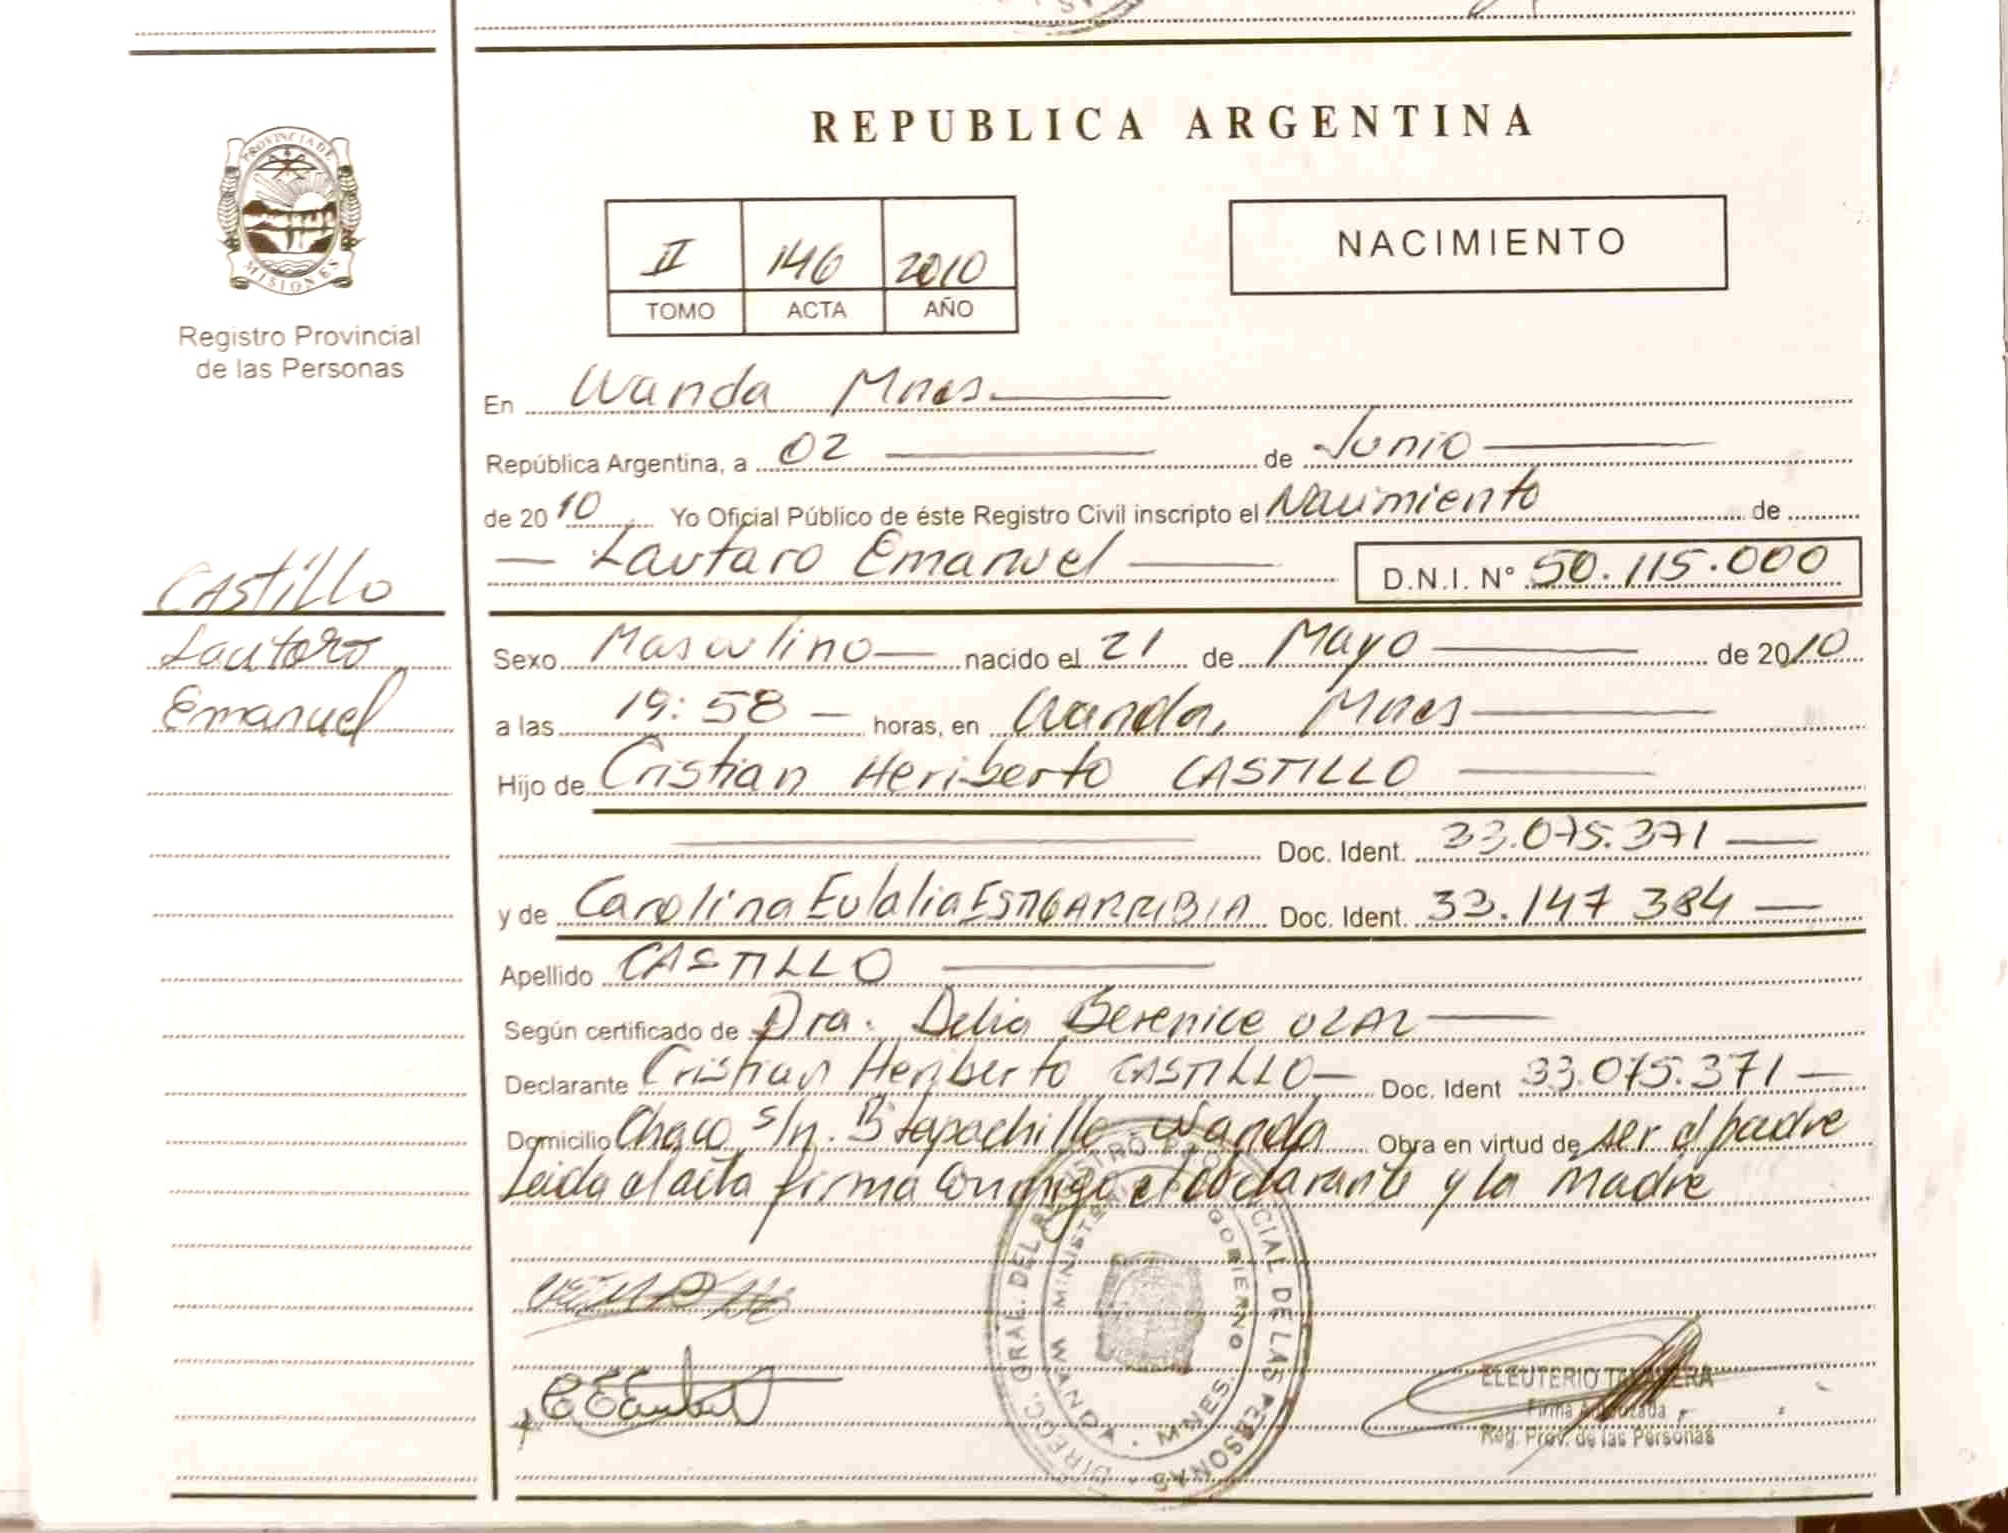 REPUBLICA ARGENTINA
PROVINCIA DE
MISIONES
Registro Provincial
de las Personas
II 146 2010
TOMO ACTA AÑO
NACIMIENTO
En Wanda Mnes
República Argentina, a 02 de Junio
de 2010 Yo Oficial Público de éste Registro Civil inscripto el Nacimiento de
Lautaro Emanuel D.N.I. Nº 50.115.000
CASTILLO
Lautaro
Emanuel
Sexo Masculino nacido el 21 de Mayo de 2010
a las 19:58 horas, en Wanda, Mnes
Hijo de Cristian Heriberto CASTILLO
Doc. Ident. 33.075.371
y de Carolina Eulalia ESTIGARRIBIA Doc. Ident. 33.147 384
Apellido CASTILLO
Según certificado de Dra. Delia Berenice
Declarante Cristian Heriberto CASTILLO Doc. Ident 33.075.371
Domicilio Chaco s/n. Wanda Obra en virtud de ser el padre
Leida el acta firma conmigo el declarante y la madre
DIRECC. GRAL. DEL REGISTRO PROVINCIAL DE LAS PERSONAS
MINISTERIO GOBIERNO
WANDA MNES.
ELEUTERIO TALAVERA
Firma Autorizada
Reg. Prov. de las Personas